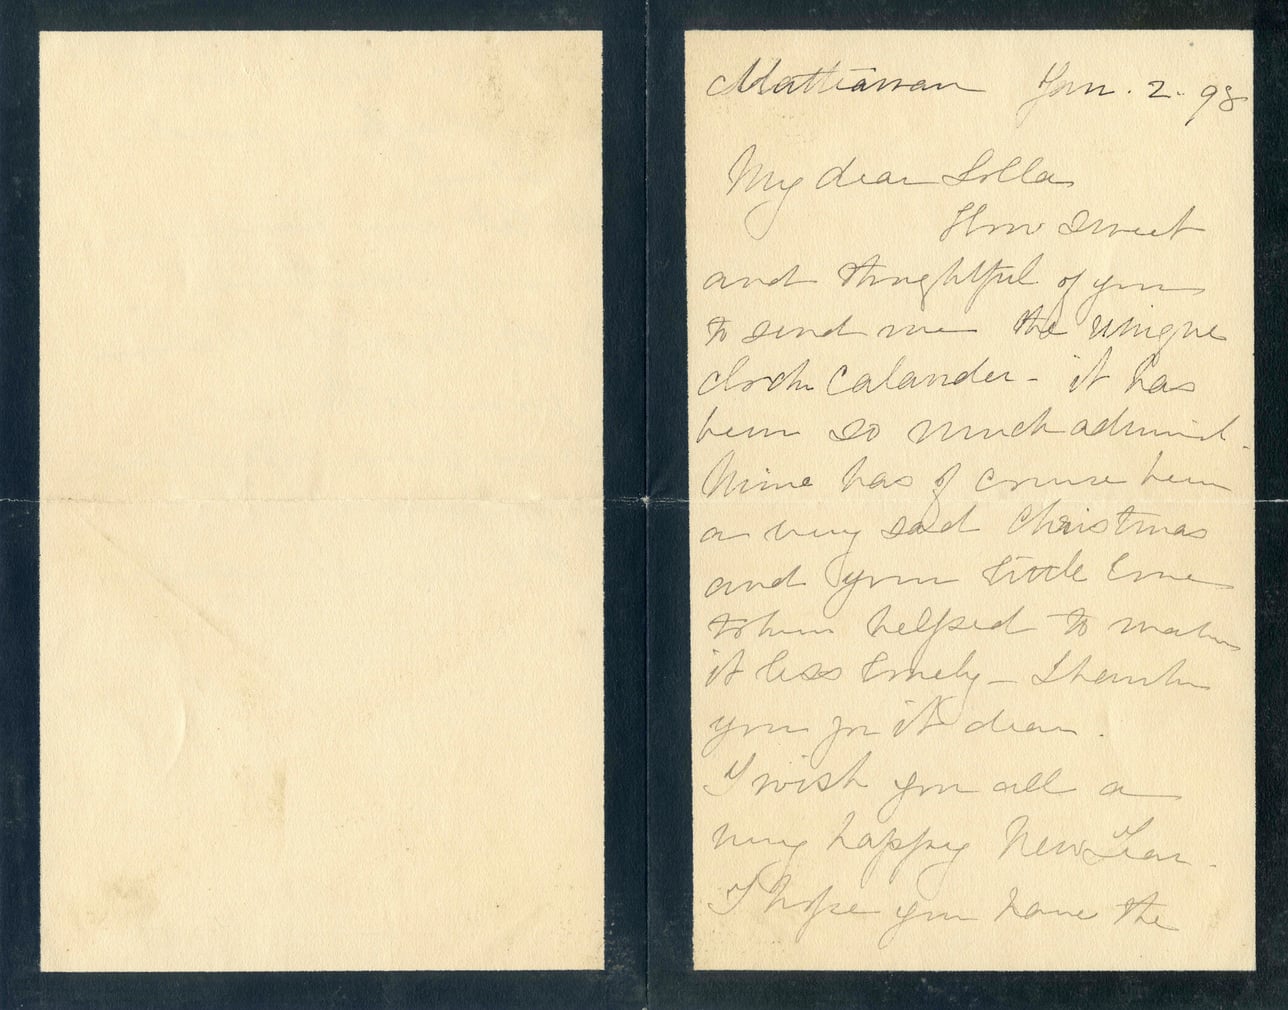 Matteawan Jan. 2. 98
My dear Lolla
How sweet
and thoughtful of you
to send me the unique
clock calander - it has
been so much admired.
Mine has of course been
a very sad Christmas
and your little love
token helped to make
it less lonely - I thank
you for it dear.
I wish you all a
very happy New Year.
I hope you have the